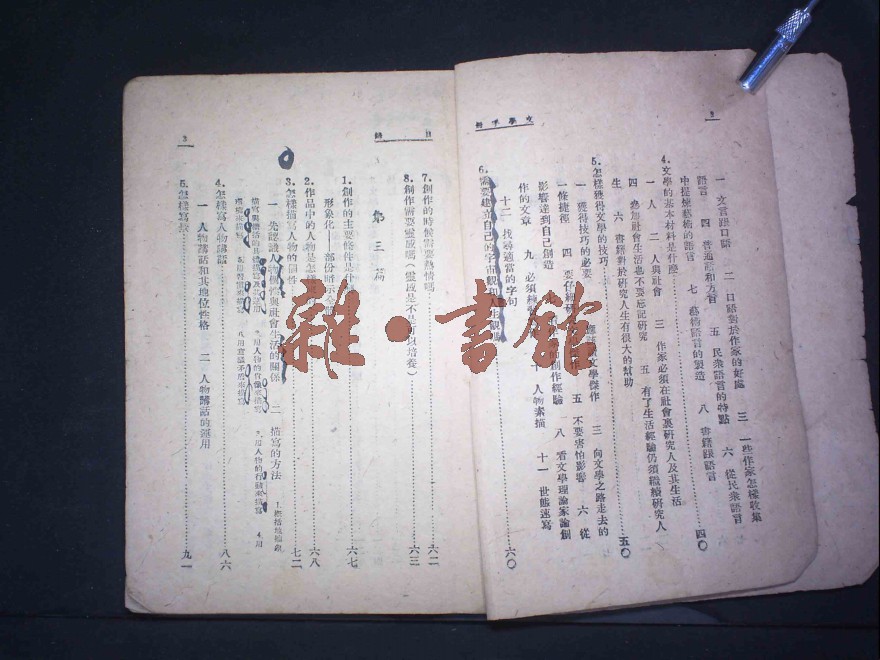 2
文學手冊
一 文言跟口語 二 口語對於作家的好處 三 一些作家怎樣收集
語言 四 普通話和方言 五 民衆語言的特點 六 從民衆語言
中提煉藝術的語言 七 藝術語言的製造 八 書籍跟語言
四〇
4.文學的基本材料是什麼
一 人 二 人與社會 三 作家必須在社會裏研究人及其生活
四 參加社會生活也不要忘記研究 五 有了生活經驗仍須繼續研究人
生 六 書籍對於研究人生有很大的幫助
五〇
5.怎樣獲得文學的技巧
一 獲得技巧的必要 文學傑作 三 向文學之路走去的
一條捷徑 四 要仔細 五 不要害怕影響 六 從
影響達到自己創造 的創作經驗 八 看文學理論家論創
作的文章 九 必須練 十 人物素描 十一 世態速寫
十二 找尋適當的字句
6.需要建立自己的宇宙觀和人生觀
六〇
目錄
3
7.創作的時候需要熱情嗎 六二
8.創作需要靈感嗎(靈感是不是可以培養) 六三
第三篇
1.創作的主要條件是什 六七
形象化——部份暗示全
2.作品中的人物是怎樣 六八
3.怎樣描寫人物的個性 七二
一 先認識人物個性與社會生活的關係 二 描寫的方法
4.怎樣寫人物講話 八六
一 人物講話和其地位性格 二 人物講話的運用
5.怎樣寫 九一
雜·書館